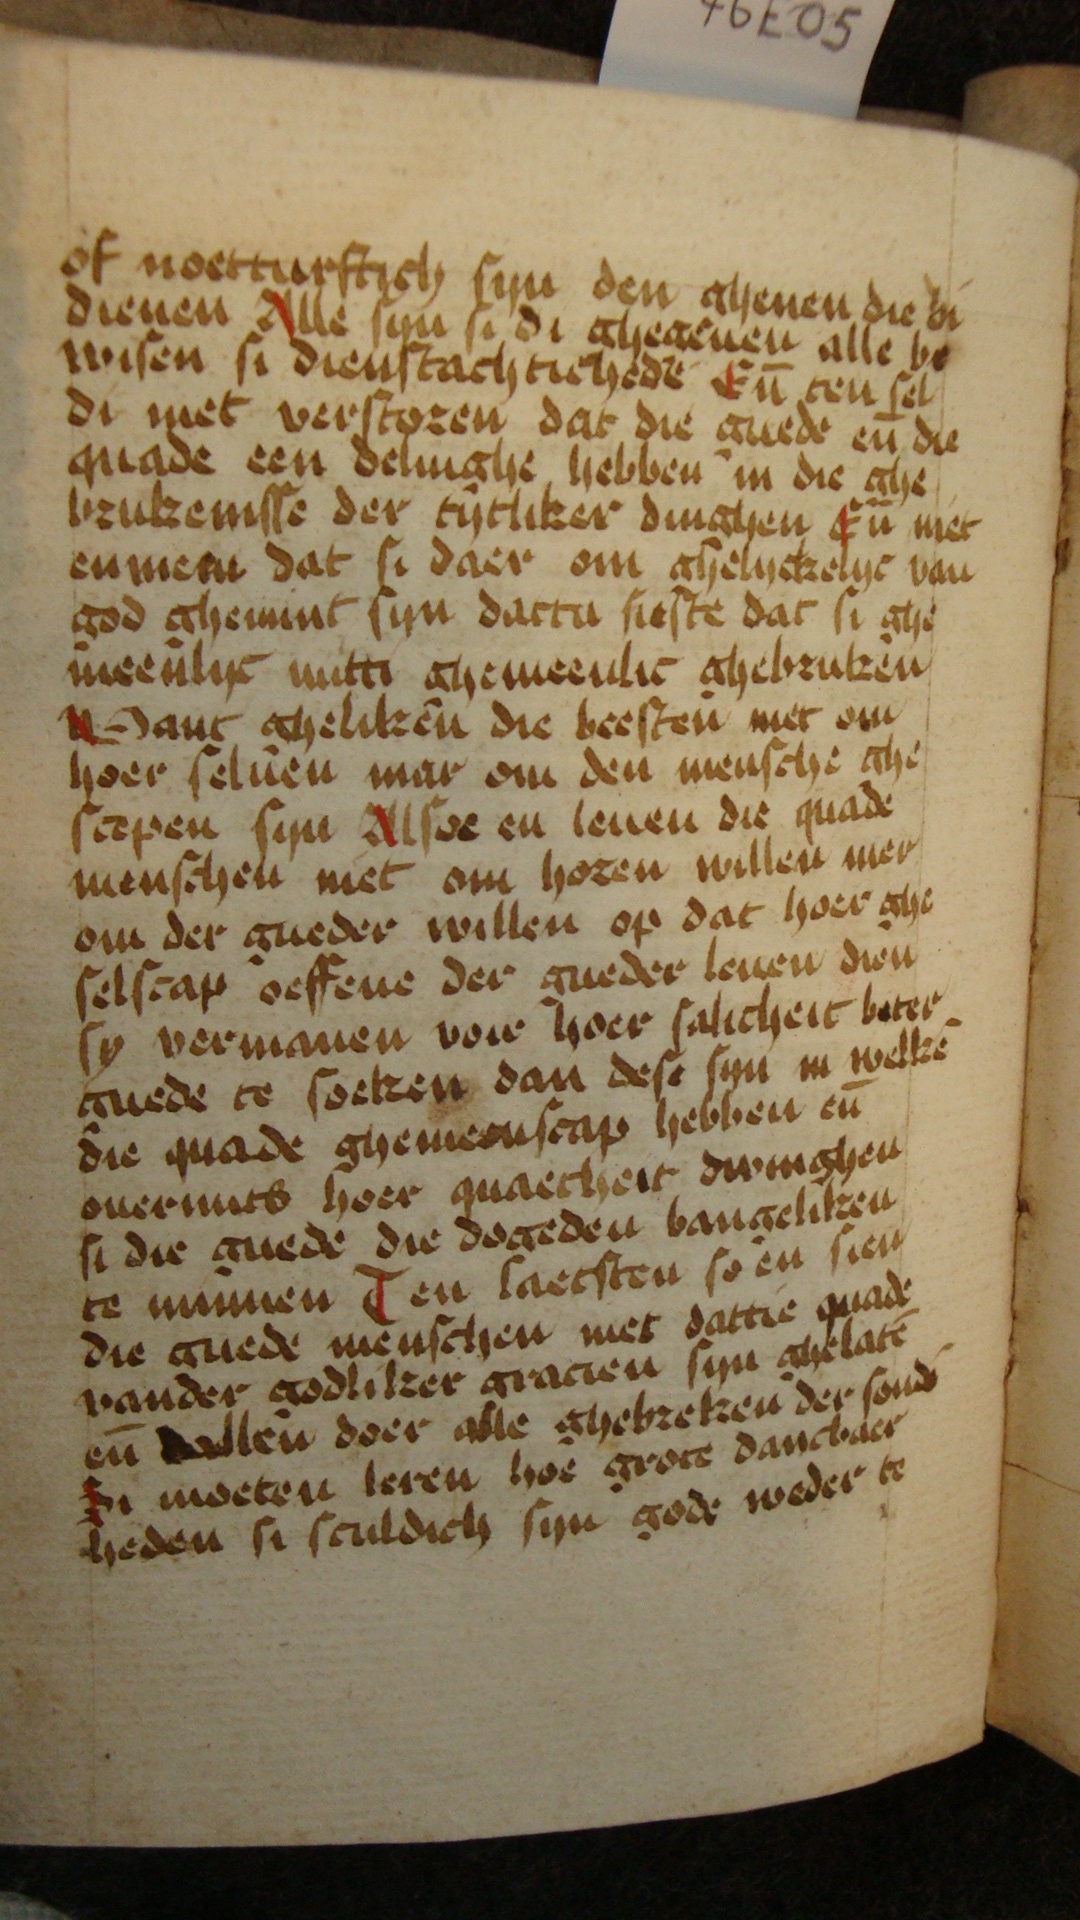 76E05
of noetturftich syn den ghenen die di
dienen Alle syn si di ghegeuen alle be
wisen si dienstachtichede En̄ ten sel
di niet verstoren dat die guede en̄ die
quade een delinghe hebben in die ghe
brukenisse der tijtliker dinghen En̄ niet
en meen dat si daer om ghelyckelyc van
god ghemint syn dattu sieste dat si ghe
meenlyc mitti ghemeenlic ghebruken
Want gheliken die beesten niet om
hoer seluen mar om den mensche ghe
scepen syn Allsoe en leuen die quade
menschen niet om horen willen mer
om der gueder willen op dat hoer ghe
selscap oeffene der gueder leuen dien
sy vermanen voir hoer salicheit beter
guede te soeken dan dese syn in welkē
die quade ghemeenscap hebben en̄
ouermits hoer quaetheit dwinghen
si die guede die dogeden bangeliken
te minnen Ten laetsten so en sien
die guede menschen niet dattie quade
vander godliker gracien syn ghelatē
en̄ vallen doer alle ghebreken der sondē
Si moeten leren hoe grote dancbaer
heden si sculdich syn gode weder te